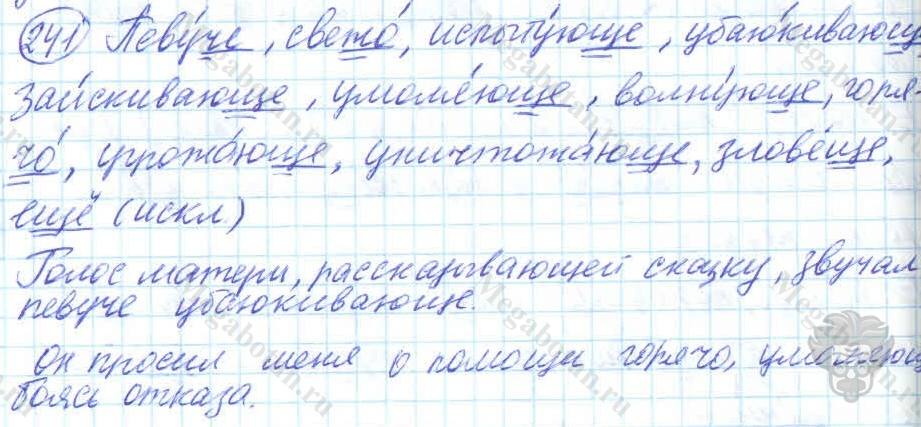 241 Певу́че, свежо́, испыту́юще, убаю́кивающ
Заи́скивающе, умоля́юще, волну́юще, горя-
чо́, угрожа́юще, уничтожа́юще, злове́ще,
ещё (искл.)
Голос матери, рассказывающей сказку, звучал
певуче убаюкивающе.
Он просил меня о помощи горячо, умоляющ
боясь отказа.